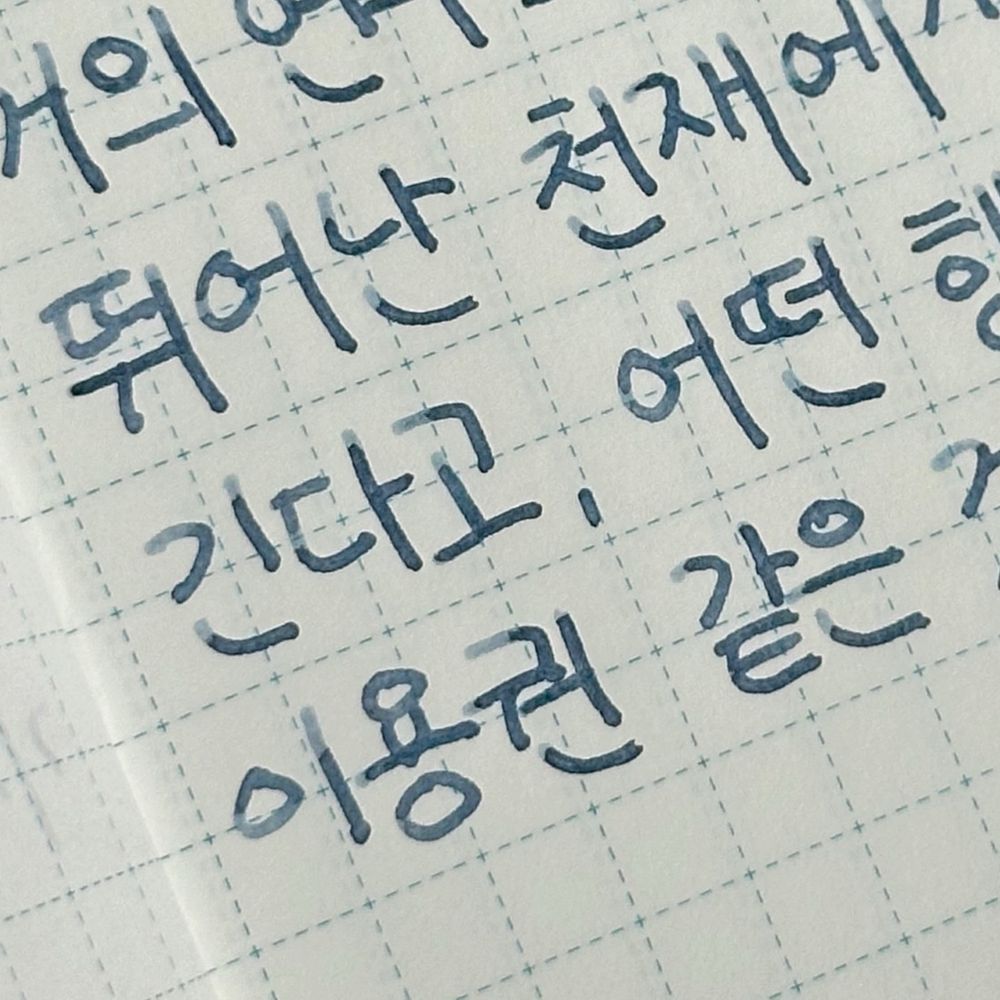 거의
뛰어난 천재에
긴다고, 어떤
이용권 같은